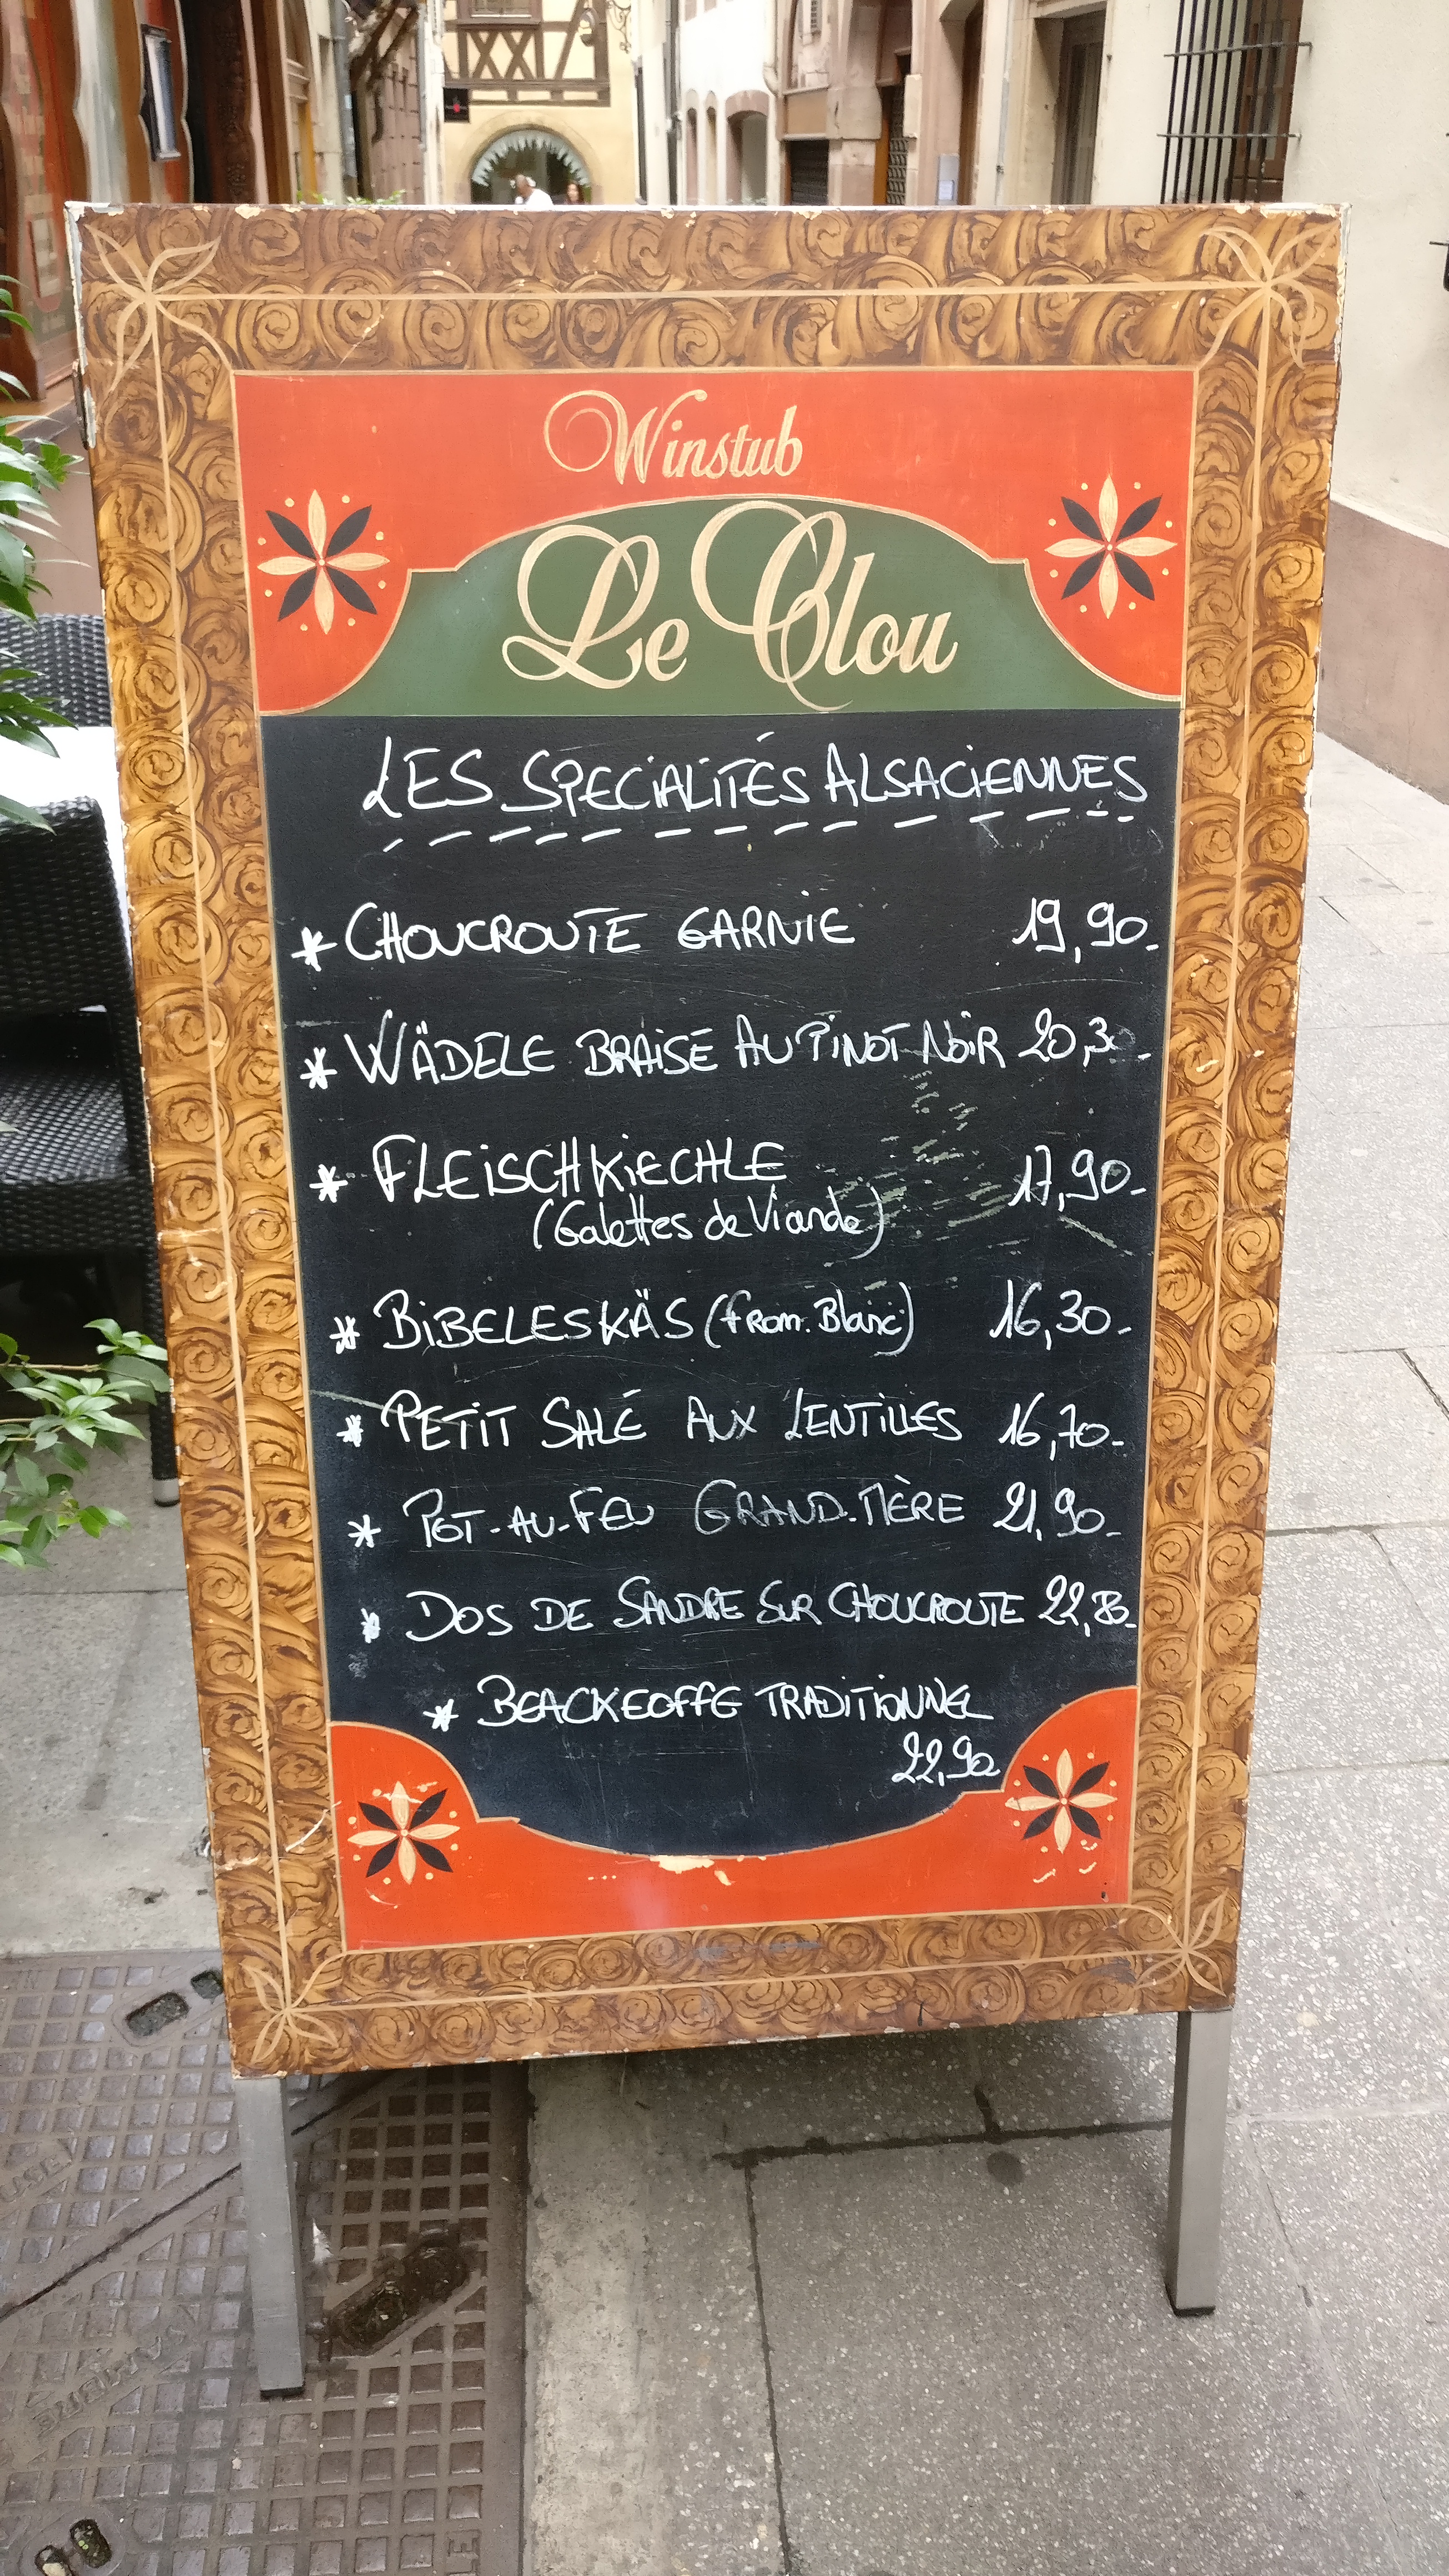 Winstub
Le Clou
LES SPECIALITÉS ALSACIENNES
* CHOUCROUTE GARNIE 19,90-
* WÄDELE BRAISE AU PINOT NOIR 20,30-
* FLEISCHKIECHLE 17,90-
(Galettes de Viande)
* BIBELESKÄS (from. Blanc) 16,30-
* PETIT SALÉ AUX LENTILLES 16,70-
* POT-AU-FEU GRAND-MÈRE 21,90-
* DOS DE SANDRE SUR CHOUCROUTE
* BEACKEOFFE TRADITIONNEL
22,90